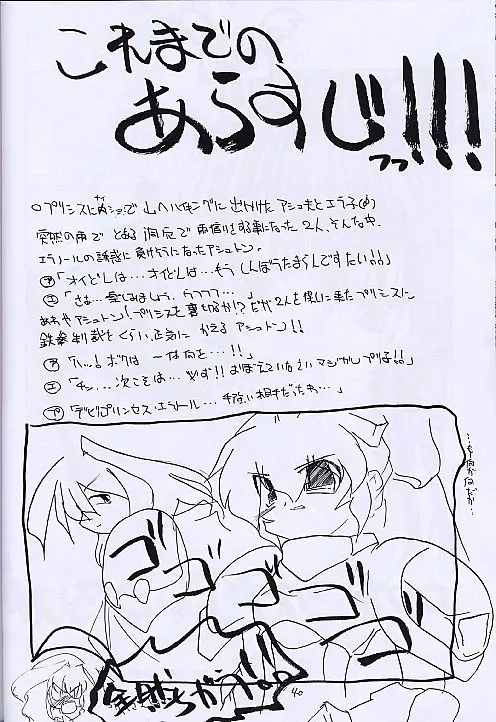 これまでの
あらすじっっ!!!
○プリンスにナイショで山へハイキングに出かけたアシュ夫とエラ子(♂)
突然の雨でとある洞窟で雨宿りをする事になった2人。そんな中、
エラノールの誘惑に負けそうになったアシュトン。
ア「オイどんは…オイどんは…もうしんぼうたまらんですたい!!」
エ「さぁ…楽しみましょう、ウフフフ…。」
ああやアシュトン!プリンスを裏切るか!?だが2人を探しに来たプリンスに
鉄拳制裁をくらい、正気にかえるアシュトン!!
ア「ハッ…!ボクは一体何を…!!」
エ「チッ…次こそは…必ず!!おぼえていなさいマジカルプリ子!!」
プ「デビプリンセス・エラノール…手強い相手だったわ…」
ゴゴゴゴゴ
全然ちがう!!
40